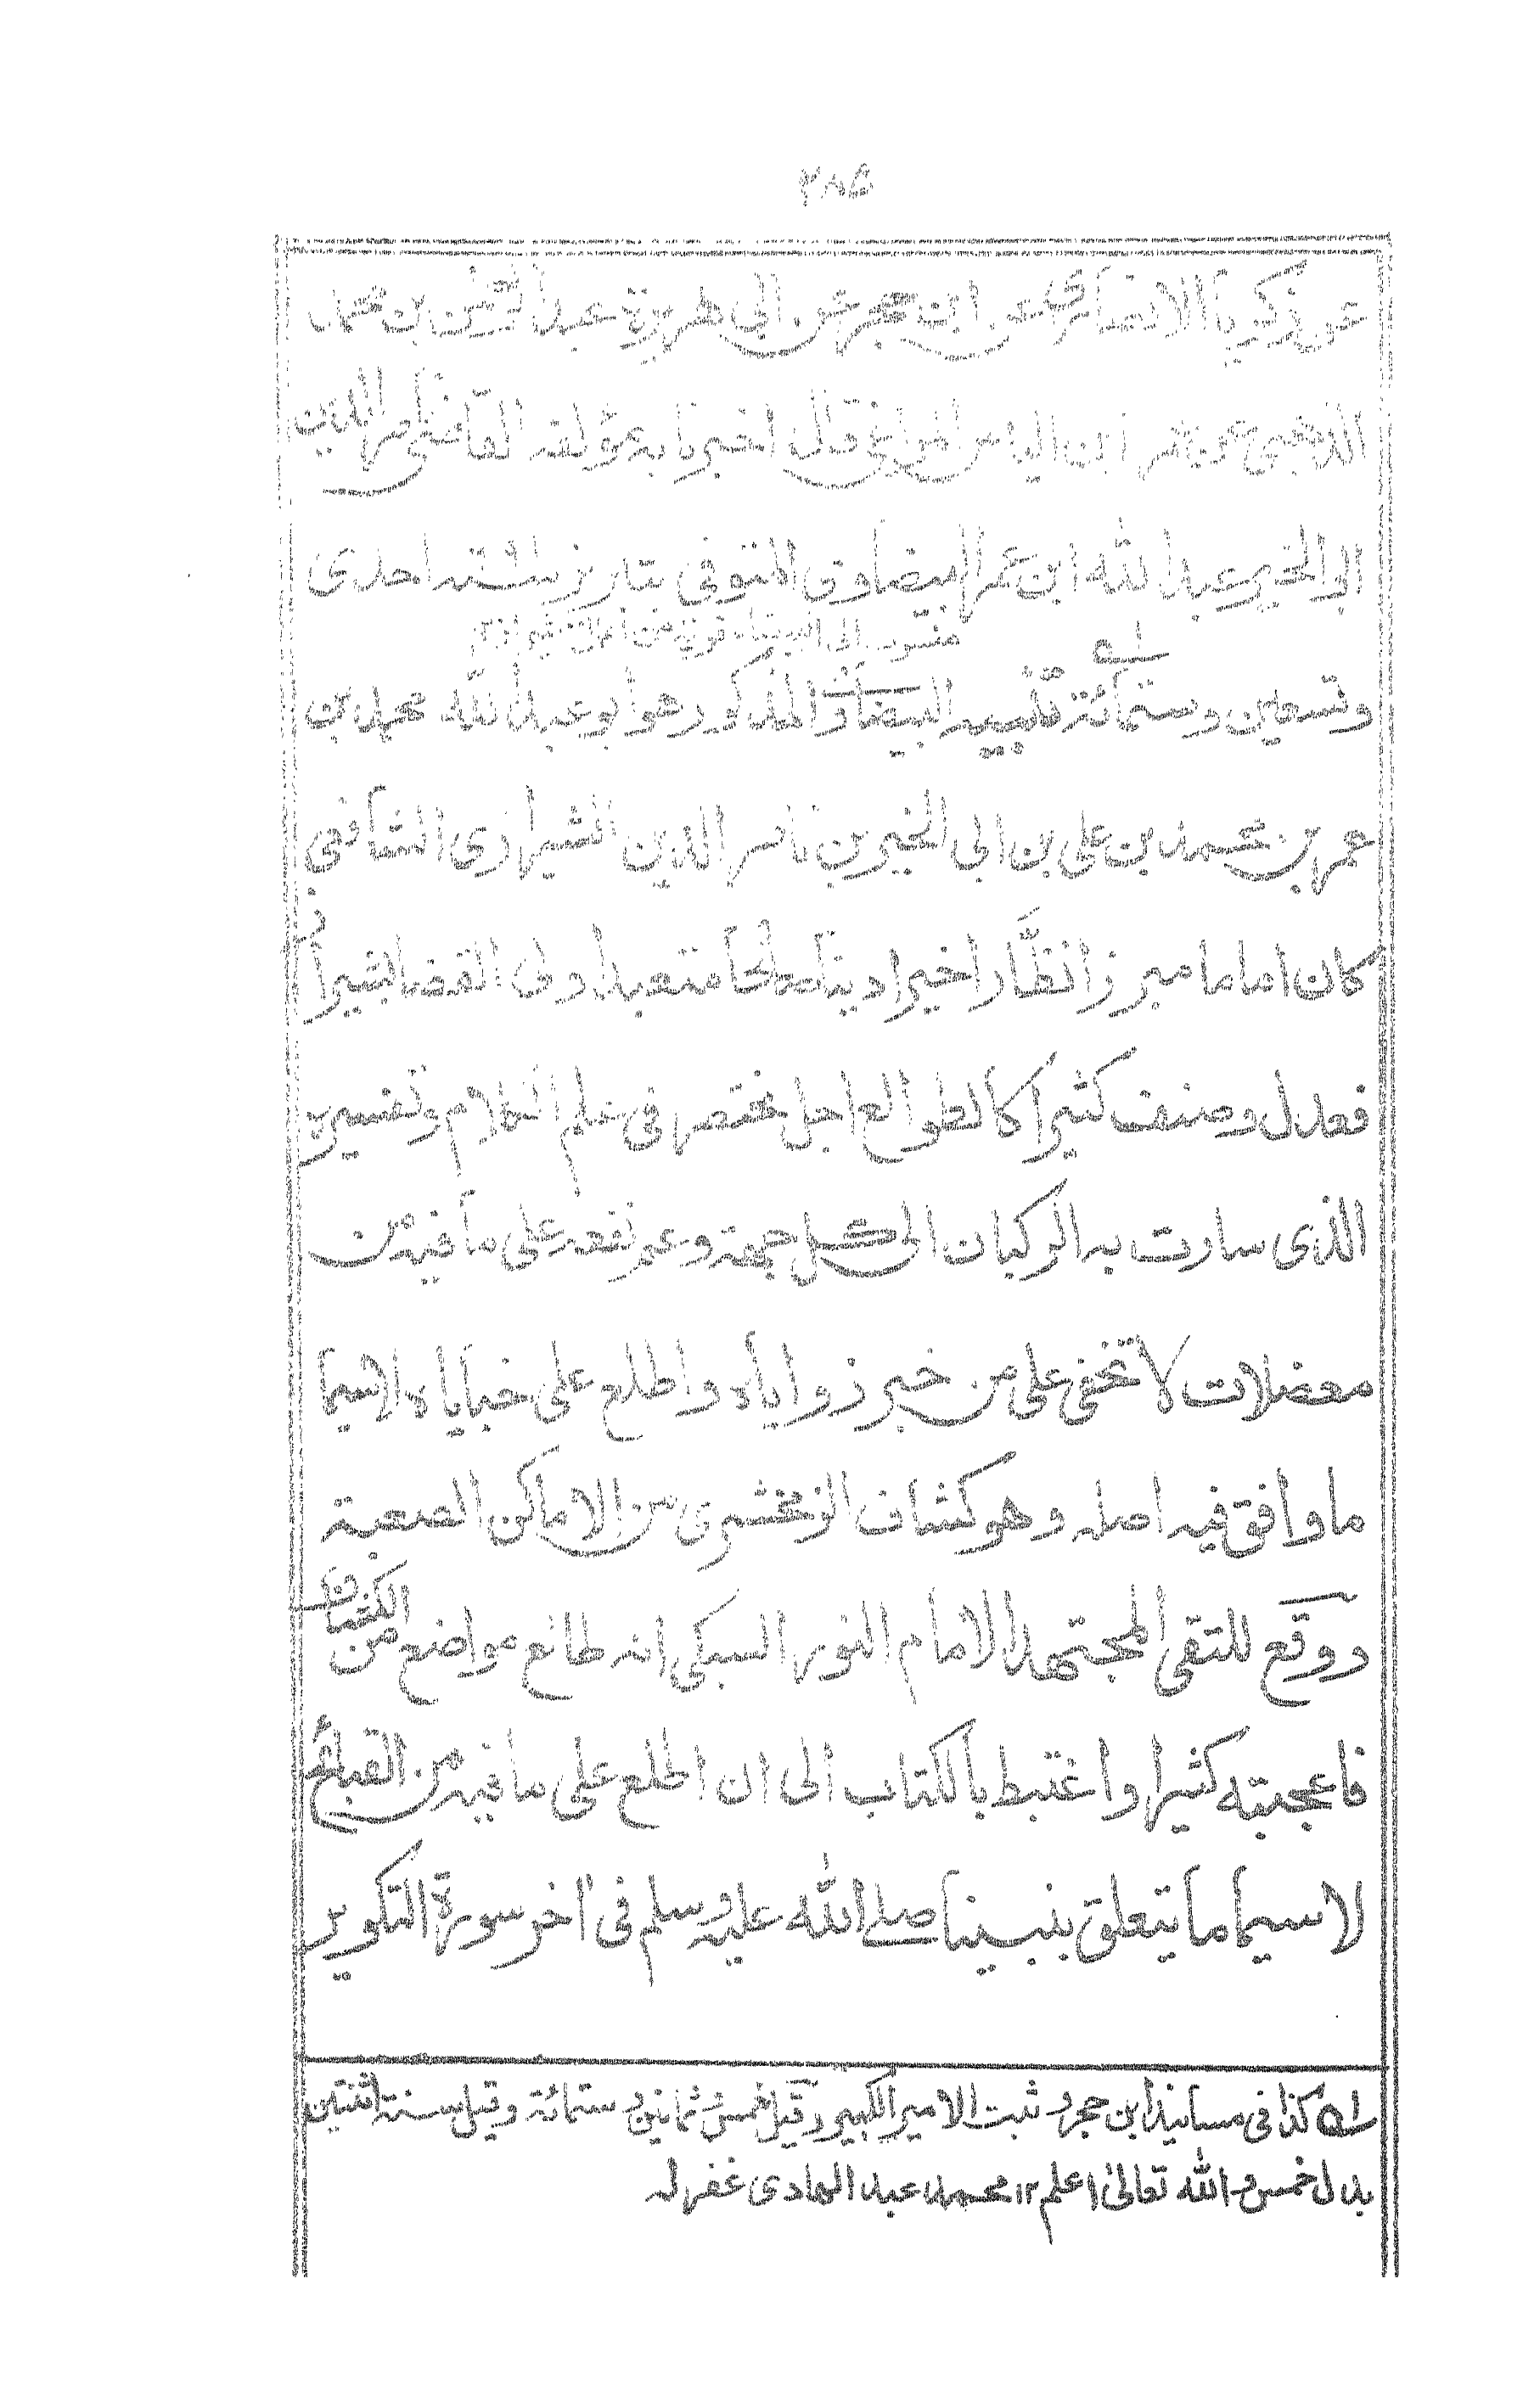 ٢٨٥
عن زكريا الانصاري عن ابن حجر عن ابي هريرة عبد الرحمن بن محمد
الذهبي عن عمر ابن الياس المراغي قال اخبرنا به مؤلفه القاضي ناصر الدين
ابي الخير عبد الله ابن عمر البيضاوي المتوفى بتبريز سنة احدى
منسوب الى البيضاء قرية من اعمال شيراز ١٢
وتسعين وستمائة له تنبيه البيضاوي المذكور هو ابو عبد الله محمد بن
عمر بن محمد بن علي بن ابي الخير بن ناصر الدين الشيرازي الشافعي
كان اماما مبرزا نظّارا خيرا دينا صالحا متعبدا ولى القضا بشيراز
فعدل وصنف كثيرا كالطوالع اجل مختصر فى علم الكلام وتفسيره
الذى سارت به الركبان الى كل جهة وعم نفعه على ما فيه من
معضلات لا تخفى على من خبر زواياه واطلع على خباياه لاسيما
ما وافق فيه اصله وهو كشاف الزمخشرى من الاماكن الصعبة
ووقع للتقى المجتهد الامام النور السبكى انه طالع مواضع من الكشاف
فاعجبته كثيرا واغتبط بالكتاب الى ان اطلع على ما فيه من القبائح
لاسيما ما يتعلق بنبينا صلى الله عليه وسلم فى اخر سورة التكوير
له كذا فى مسانيد ابن حجر وثبت الامير الكبير وقيل خمس وثمانين وستمائة وقيل سنة اثنتين
بدل خمس والله تعالىٰ اعلم ١٢ محمد عبد الهادى غفر له